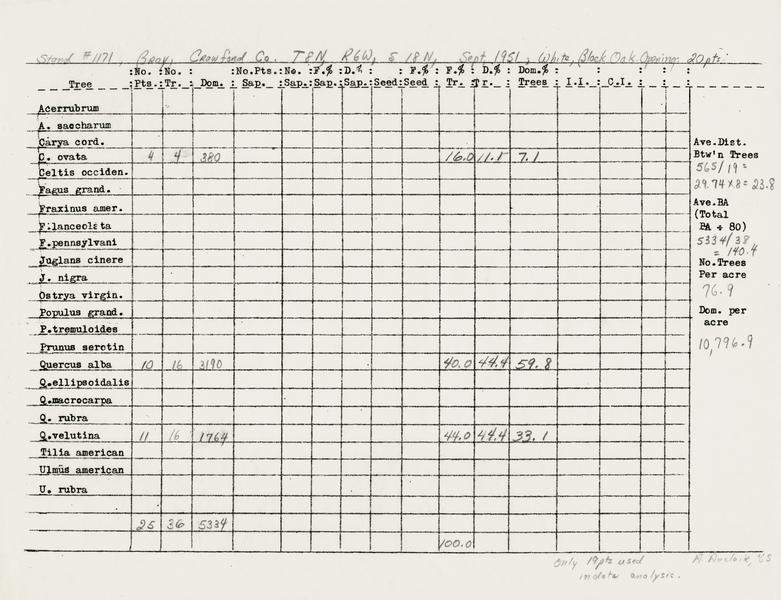 Stand #1171, Gray, Crawford Co. T8N, R6W, S 18N, Sept, 1951, White, Black Oak Opening. 20 pts.
:No. :No. : :No.Pts.:No. :F.% :D.% : :F.% :F.% :D.% :Dom.% : : : : :
Tree :Pts.:Tr. : Dom. : Sap. :Sap.:Sap.:Sap.:Seed:Seed : Tr. :Tr. : Trees : I.I. : C.I. : : :
Acerrubrum
A. saccharum
Carya cord.
C. ovata 4 4 380 16.0 11.1 7.1
Celtis occiden.
Fagus grand.
Fraxinus amer.
F.lanceolata
F.pennsylvani
Juglans cinere
J. nigra
Ostrya virgin.
Populus grand.
P.tremuloides
Prunus serotin
Quercus alba 10 16 3190 40.0 44.4 59.8
Q.ellipsoidalis
Q.macrocarpa
Q. rubra
Q.velutina 11 16 1764 44.0 44.4 33.1
Tilia american
Ulmus american
U. rubra
25 36 5334
100.0
Ave.Dist.
Btw'n Trees
565/19 =
29.74 x.8 = 23.8
Ave.BA
(Total
BA ÷ 80)
5334/38
= 140.4
No.Trees
Per acre
76.9
Dom. per
acre
10,796.9
only 19 pts used
in data analysis.